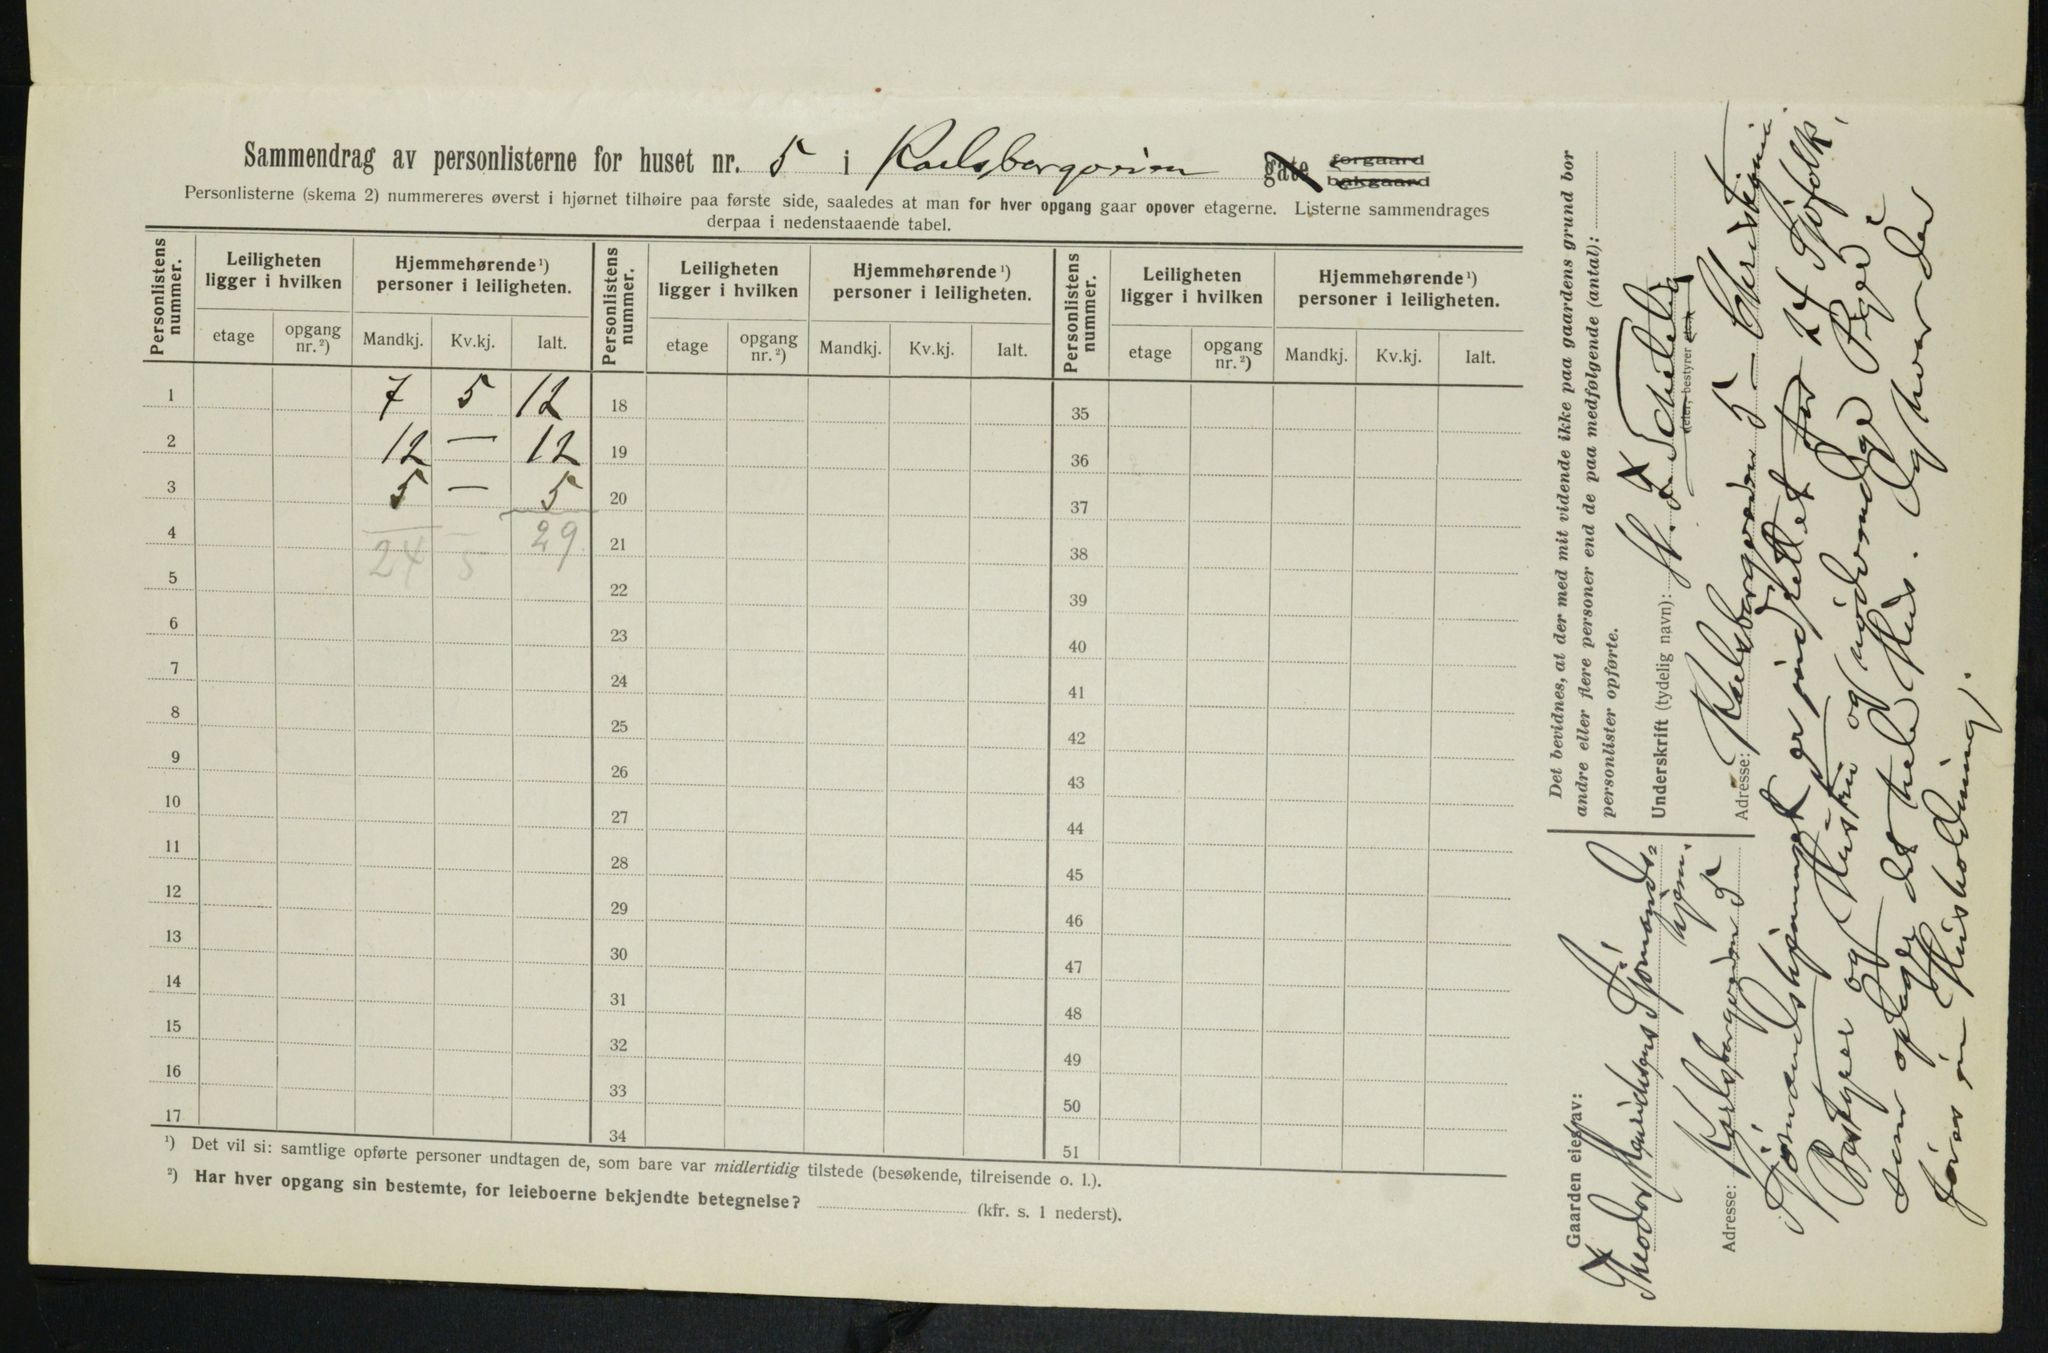 Sammendrag av personlisterne for huset nr. 5 i Karlsborgveien gate forgaard bakgaard
Personlisterne (skema 2) nummereres øverst i hjørnet tilhøire paa første side, saaledes at man for hver opgang gaar opover etagerne. Listerne sammendrages
derpaa i nedenstaaende tabel.
Personlistens nummer. Leiligheten ligger i hvilken Hjemmehørende ¹) personer i leiligheten. Personlistens nummer. Leiligheten ligger i hvilken Hjemmehørende ¹) personer i leiligheten. Personlistens nummer. Leiligheten ligger i hvilken Hjemmehørende ¹) personer i leiligheten.
etage opgang nr. ²) Mandkj. Kv.kj. Ialt. etage opgang nr. ²) Mandkj. Kv.kj. Ialt. etage opgang nr. ²) Mandkj. Kv.kj. Ialt.
1 7 5 12 18 35
2 12 — 12 19 36
3 5 — 5 20 37
4 24 5 29 21 38
5 22 39
6 23 40
7 24 41
8 25 42
9 26 43
10 27 44
11 28 45
12 29 46
13 30 47
14 31 48
15 32 49
16 33 50
17 34 51
¹) Det vil si: samtlige opførte personer undtagen de, som bare var midlertidig tilstede (besøkende, tilreisende o. l.).
²) Har hver opgang sin bestemte, for leieboerne bekjendte betegnelse? (kfr. s. 1 nederst).
Det bevidnes, at der med mit vidende ikke paa gaardens grund bor
andre eller flere personer end de paa medfølgende (antal):
personlister opførte.
Underskrift (tydelig navn):
(eier, bestyrer
Adresse: Karlsborgveien 5 Christiania
Gaarden eies av:
Theodor Mauritzens Sjömands=
hjem.
Adresse: Karlsborgveien 5
Sjömandshjemmet er indrettet for 24 Sjöfolk,
Bestyrer og Hustru og nödvendige Piger
som optager det hele Hus. Og hvor der
föres en Husholdning.